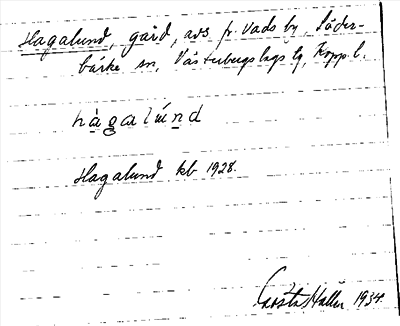 Hagalund, gård, avs. fr. Vads by, Söder-
bärke sn, Västerbergslags tg, Kopp. l.
hàgalúnd
Hagalund kb 1928.
Gösta Hallin 1934.